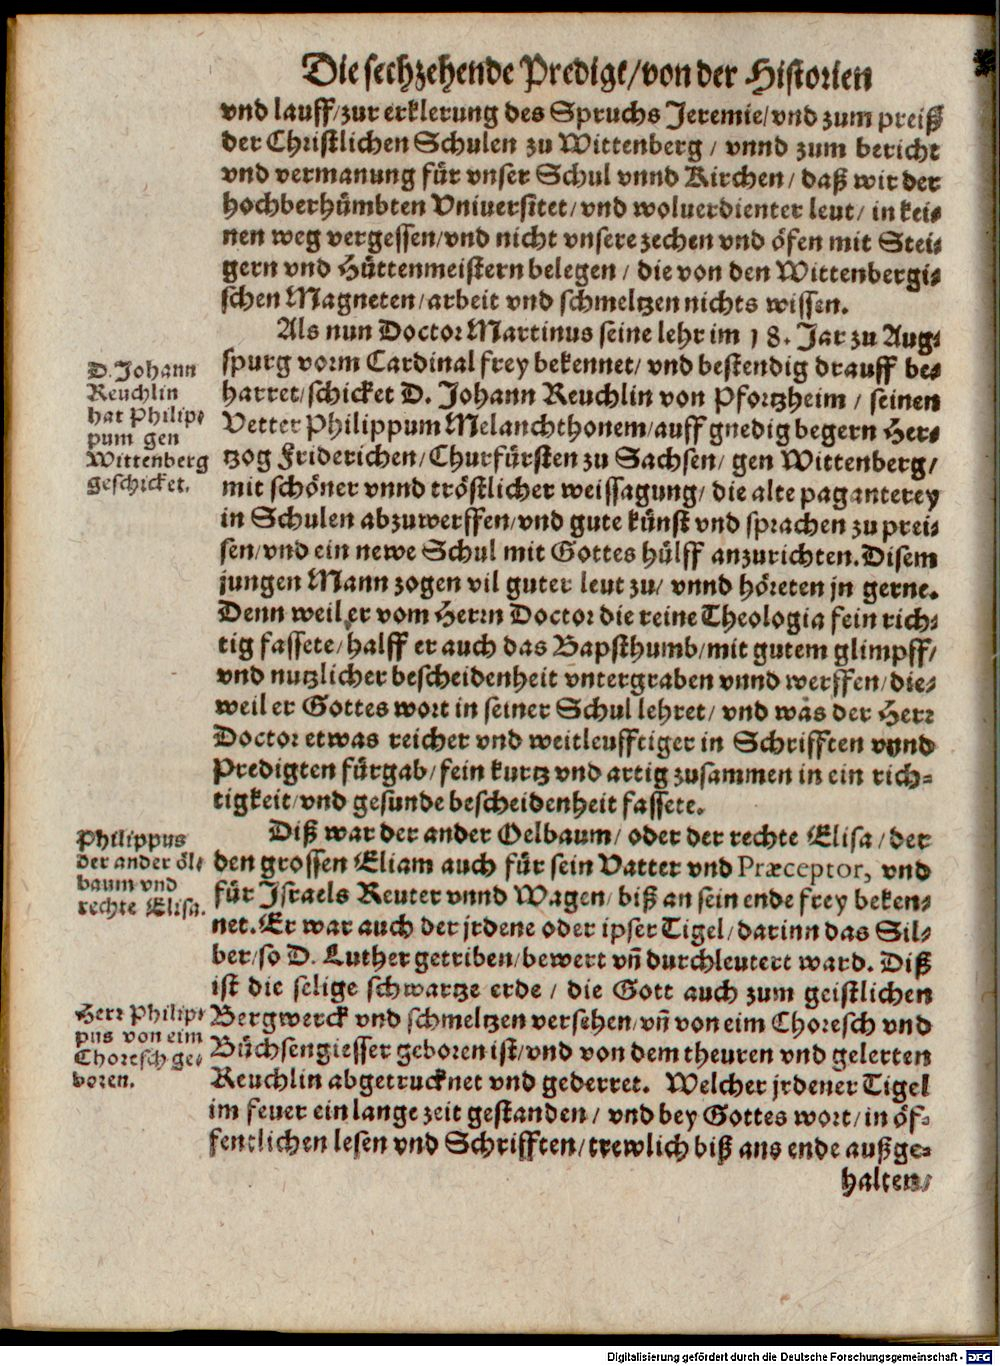 Die sechzehende Predigt/von der Historien
vnd lauff/zur erklerung des Spruchs Jeremie/vnd zum preiß
der Christlichen Schulen zu Wittenberg / vnnd zum bericht
vnd vermanung für vnser Schul vnnd Kirchen/ daß wir der
hochberhümbten Vniuersitet/vnd woluerdienter leut/ in kei⸗
nen weg vergessen/vnd nicht vnsere zechen vnd öfen mit Stei⸗
gern vnd Hüttenmeistern belegen / die von den Wittenbergi⸗
schen Magneten/arbeit vnd schmeltzen nichts wissen.
Als nun Doctor Martinus seine lehr im 18. Jar zu Aug⸗
spurg vorm Cardinal frey bekennet/ vnd bestendig drauff be⸗
harret/schicket D. Johann Reuchlin von Pfortzheim / seinen
Vetter Philippum Melanchthonem/auff gnedig begern Her⸗
tzog Friderichen/Churfürsten zu Sachsen/ gen Wittenberg/
mit schöner vnnd tröstlicher weissagung/ die alte paganterey
in Schulen abzuwerffen/vnd gute künst vnd sprachen zu prei⸗
sen/vnd ein newe Schul mit Gottes hülff anzurichten. Disem
jungen Mann zogen vil guter leut zu/ vnnd höreten jn gerne.
Denn weil er vom Herrn Doctor die reine Theologia fein rich⸗
tig fassete/halff er auch das Bapsthumb/mit gutem glimpff/
vnd nutzlicher bescheidenheit vntergraben vnnd werffen/die⸗
weil er Gottes wort in seiner Schul lehret/ vnd was der Herr
Doctor etwas reicher vnd weitleufftiger in Schrifften vnnd
Predigten fürgab/fein kurtz vnd artig zusammen in ein rich⸗
tigkeit/vnd gesunde bescheidenheit fassete.
D. Johann
Reuchlin
hat Philip⸗
pum gen
Wittenberg
geschicket.
Diß war der ander Oelbaum/ oder der rechte Elisa/der
den grossen Eliam auch für sein Vatter vnd Præceptor, vnd
für Israels Reuter vnnd Wagen/ biß an sein ende frey beken⸗
net. Er war auch der jrdene oder ipser Tigel/darinn das Sil⸗
ber/so D. Luther getriben/bewert vn̄ durchleutert ward. Diß
ist die selige schwartze erde / die Gott auch zum geistlichen
Bergwerck vnd schmeltzen versehen/vn̄ von eim Choresch vnd
Büchsengiesser geboren ist/vnd von dem theuren vnd gelerten
Reuchlin abgetrucknet vnd gederret. Welcher jrdener Tigel
im feuer ein lange zeit gestanden/ vnd bey Gottes wort/in öf⸗
fentlichen lesen vnd Schrifften/trewlich biß ans ende außge⸗
halten/
Philippus
der ander öl⸗
baum vnd
rechte Elisa.
Herr Philip⸗
pus von eim
Choresch ge⸗
boren.
Digitalisierung gefördert durch die Deutsche Forschungsgemeinschaft - DFG